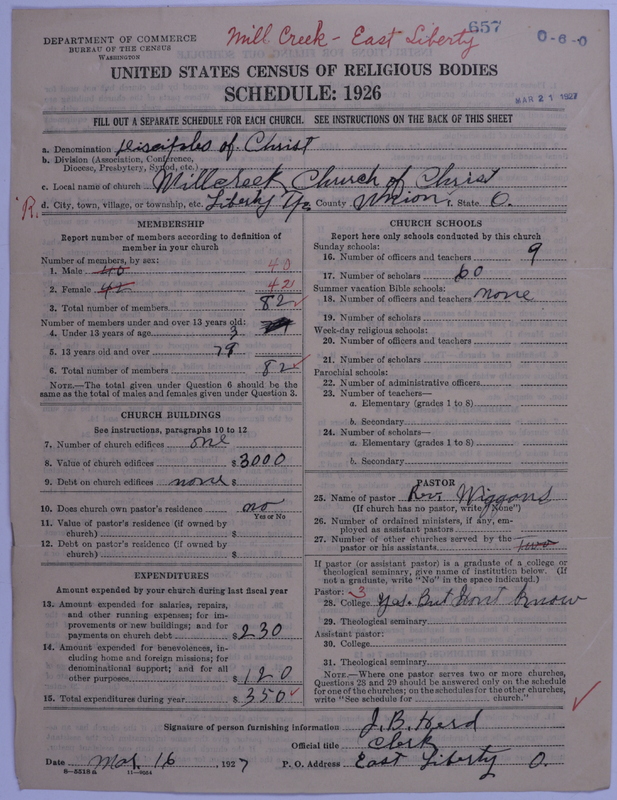 DEPARTMENT OF COMMERCE
BUREAU OF THE CENSUS
WASHINGTON
Mill Creek - East Liberty
657
0-6-0
MAR 21 1927
UNITED STATES CENSUS OF RELIGIOUS BODIES
SCHEDULE: 1926
FILL OUT A SEPARATE SCHEDULE FOR EACH CHURCH. SEE INSTRUCTIONS ON THE BACK OF THIS SHEET
a. Denomination Disciples of Christ
b. Division (Association, Conference,
Diocese, Presbytery, Synod, etc.)
c. Local name of church Millcreek Church of Christ
R. d. City, town, village, or township, etc. Liberty Tp. County Union f. State O.
MEMBERSHIP
Report number of members according to definition of
member in your church
Number of members, by sex:
1. Male 40 40
2. Female 42 42
3. Total number of members 82
Number of members under and over 13 years old:
4. Under 13 years of age 3
5. 13 years old and over 79
6. Total number of members 82
NOTE.—The total given under Question 6 should be
the same as the total of males and females given under Question 3.
CHURCH BUILDINGS
See instructions, paragraphs 10 to 12
7. Number of church edifices one
8. Value of church edifices $3000
9. Debt on church edifices none $
10. Does church own pastor's residence no
Yes or No
11. Value of pastor's residence (if owned by
church) $
12. Debt on pastor's residence (if owned by
church) $
EXPENDITURES
Amount expended by your church during last fiscal year
13. Amount expended for salaries, repairs,
and other running expenses; for im-
provements or new buildings; and for
payments on church debt $230
14. Amount expended for benevolences, in-
cluding home and foreign missions; for
denominational support; and for all
other purposes $120
15. Total expenditures during year $350
CHURCH SCHOOLS
Report here only schools conducted by this church
Sunday schools:
16. Number of officers and teachers 9
17. Number of scholars 60
Summer vacation Bible schools:
18. Number of officers and teachers none
19. Number of scholars
Week-day religious schools:
20. Number of officers and teachers
21. Number of scholars
Parochial schools:
22. Number of administrative officers
23. Number of teachers—
a. Elementary (grades 1 to 8)
b. Secondary
24. Number of scholars—
a. Elementary (grades 1 to 8)
b. Secondary
PASTOR
25. Name of pastor Rev. Wiggons
(If church has no pastor, write "None")
26. Number of ordained ministers, if any, em-
ployed as assistant pastors
27. Number of other churches served by the
pastor or his assistants Two
If pastor (or assistant pastor) is a graduate of a college or
theological seminary, give name of institution below. (If
not a graduate, write "No" in the space indicated.)
Pastor: 3
28. College Yes. But Dont Know
29. Theological seminary
Assistant pastor:
30. College
31. Theological seminary
NOTE.—Where one pastor serves two or more churches,
Questions 28 and 29 should be answered only on the schedule
for one of the churches; on the schedules for the other churches,
write "See schedule for church."
Signature of person furnishing information J. B. Herd
Official title Clerk
Date Mar 16, 1927 P. O. Address East Liberty O.
8-5518a 11-9064